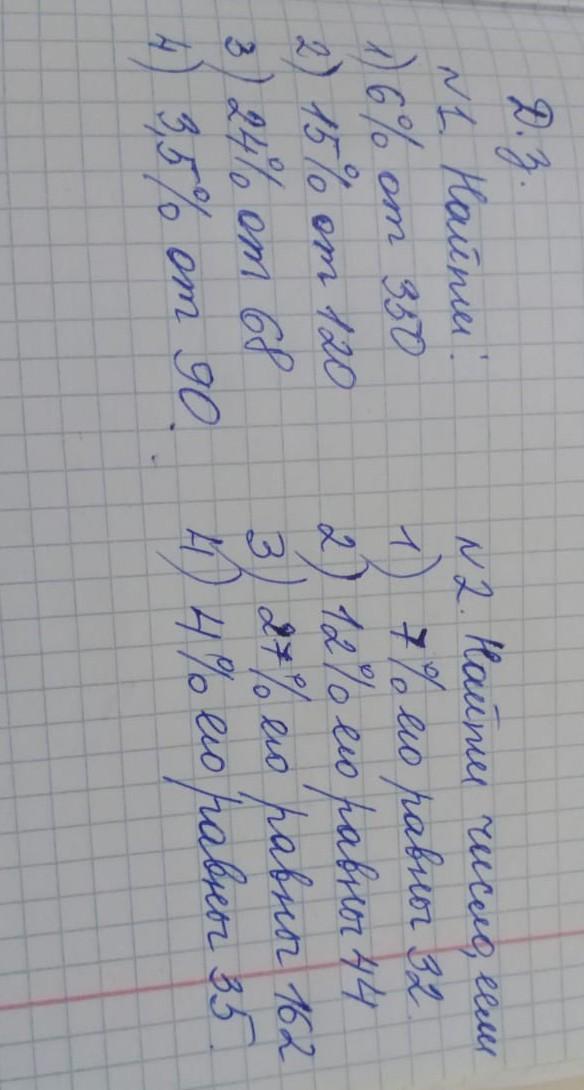 Д.з.
№1. Найти:
1) 6% от 350
2) 15% от 120
3) 24% от 68
4) 3,5% от 90
№2. Найти число, если
1) 7% его равны 32
2) 12% его равны 44
3) 27% его равны 162
4) 4% его равны 35